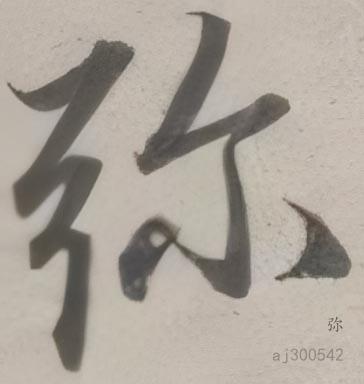 弥
弥
aj300542